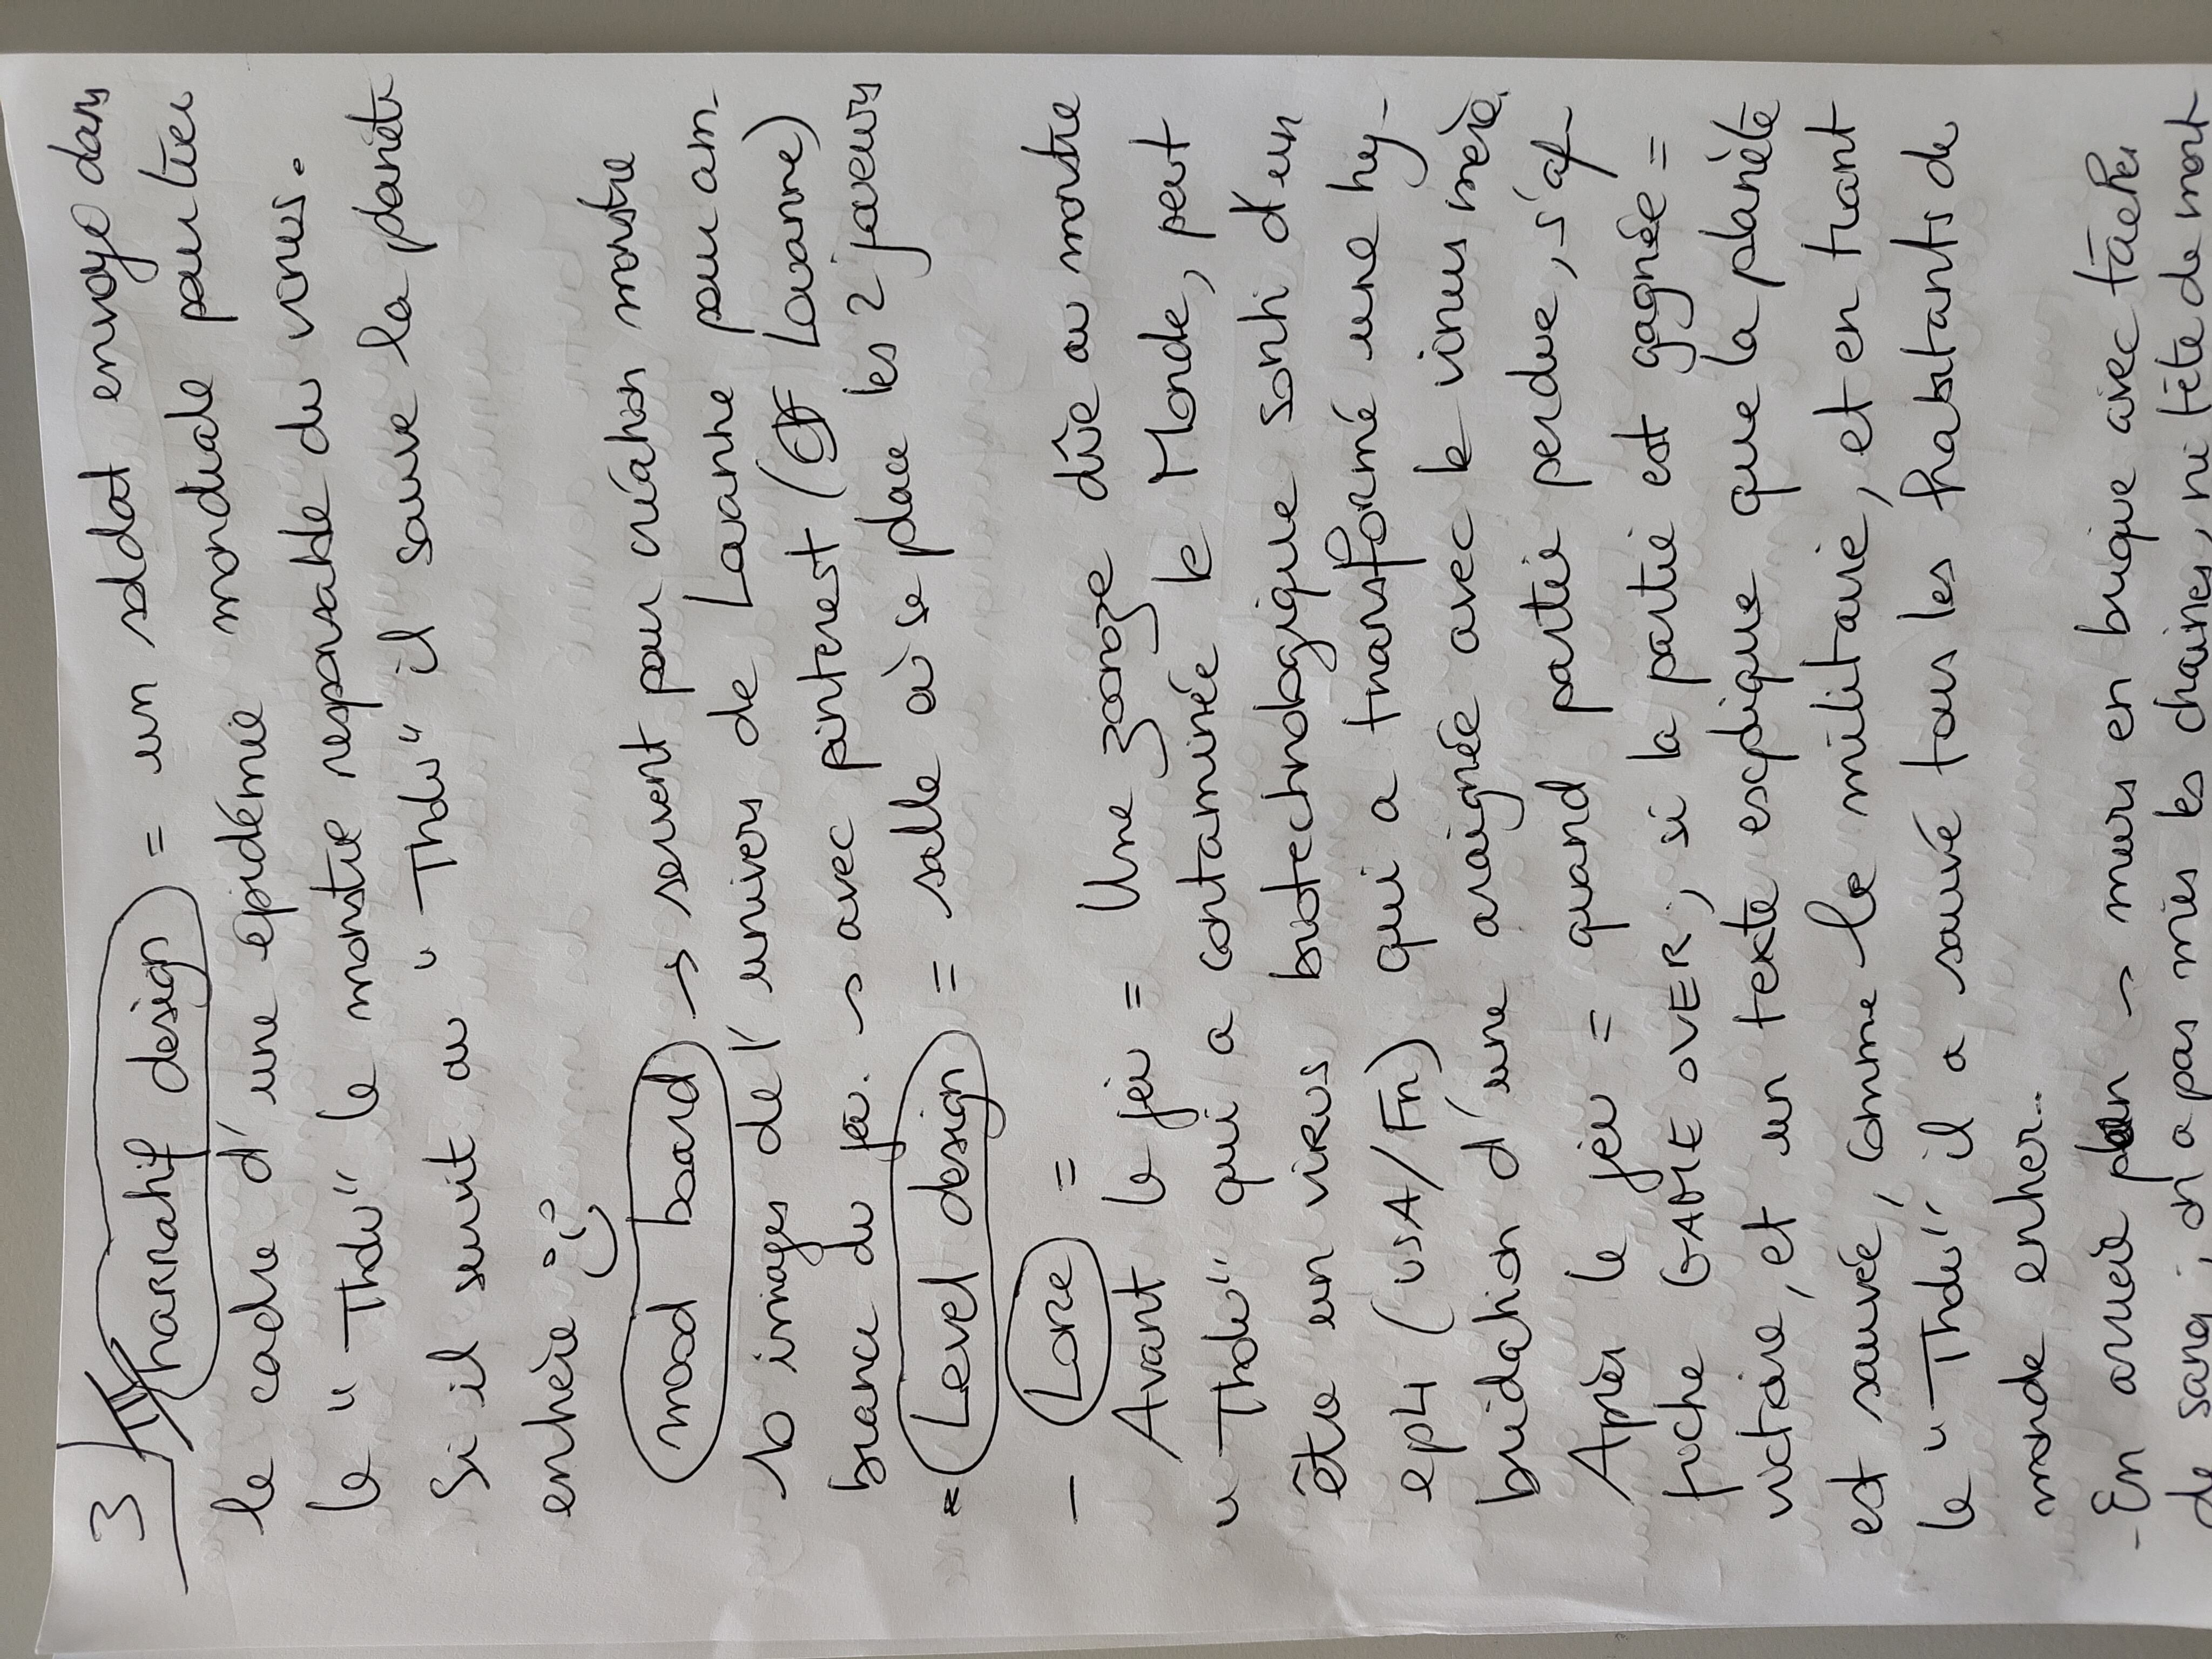 3 narratif design = un soldat envoyé dans
le cadre d'une épidémie mondiale pour tuer
le "Thdw" le monstre responsable du virus.
Si il survit au "Thdw" il sauve la planète
entière
mood board → servent pour création monstre
10 images de l'univers de Lavanne pour am-
biance du jeu. → avec pinterest (cf Lavanne)
- Level design = salle où se place les 2 joueurs
- Lore =
Avant le jeu = Une zoonoze dûe au monstre
"Thdw" qui a contaminée le Monde, peut
être un virus biotechnologique sorti d'un
ep4 (USA/Fr) qui a transformé une hy-
bridation d'une araignée avec le virus mère.
Après le jeu = quand partie perdue, s'af-
fiche GAME OVER ; si la partie est gagnée =
victoire, et un texte explique que la planète
est sauvée, comme le militaire, et en tuant
le "Thdw" il a sauvé tous les habitants du
monde entier..
- En arrière plan → murs en brique avec tâches
de sang ; on a pas mis les chaines, ni tête de mort